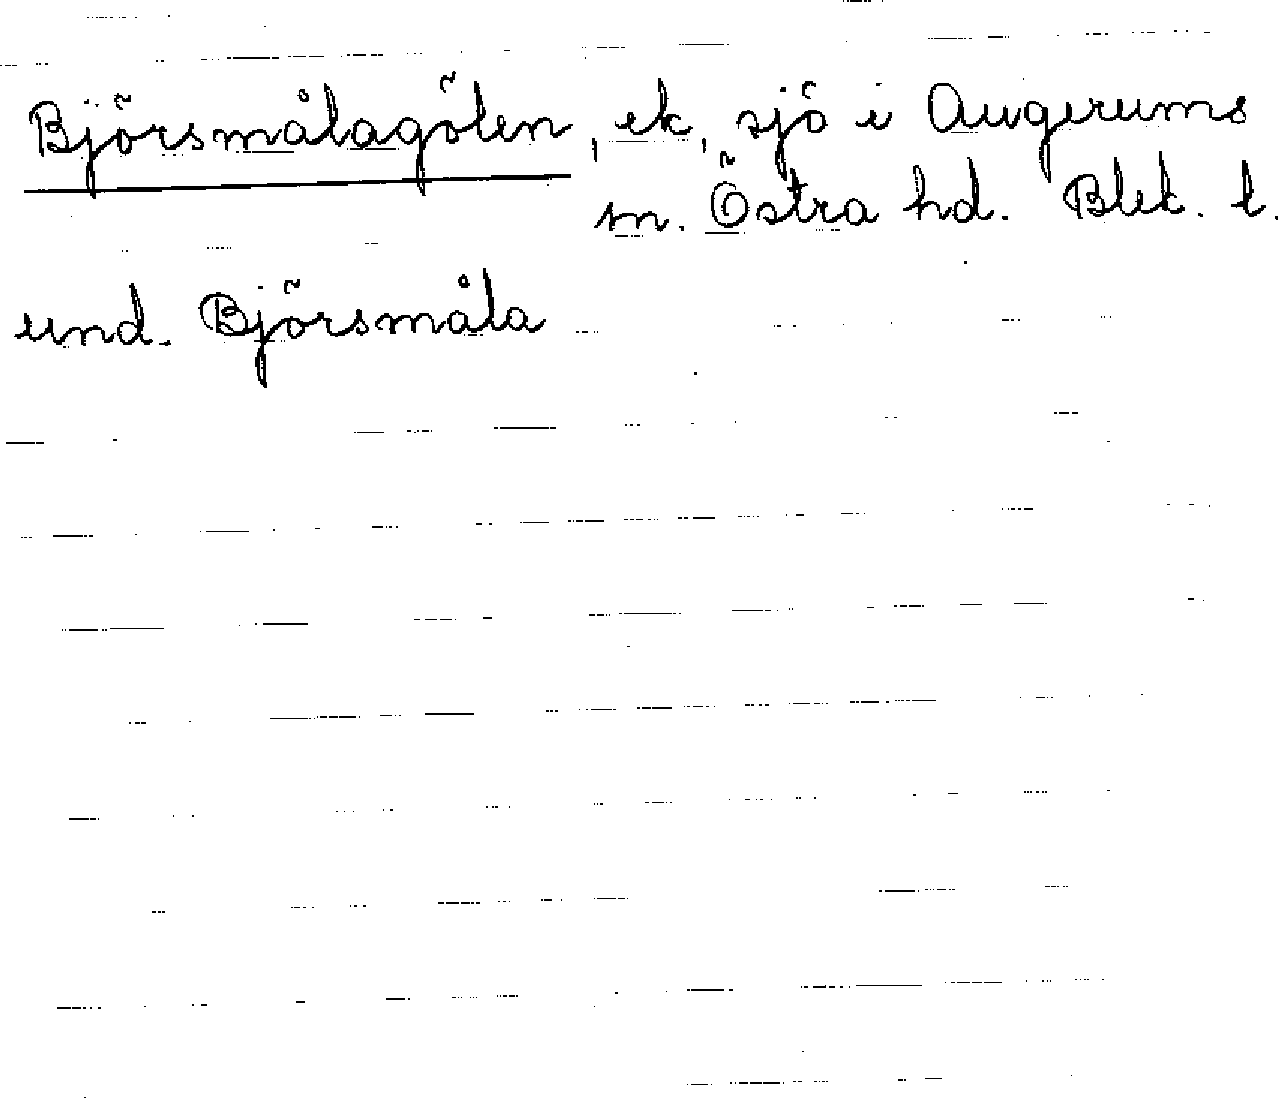 Björsmålagölen, ek, sjö i Augerums
sn. Östra hd. Blek. l.
und. Björsmåla